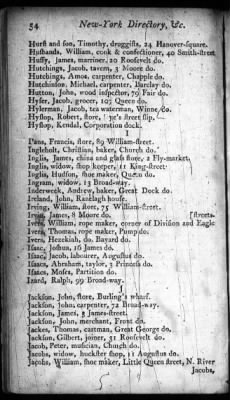 54 New-York Directory, &c.
Hurst and son, Timothy, druggists, 24 Hanover-square.
Husbands, William, cook & confectioner, 40 Smith-street
Hussy, James, marriner, 20 Roosevelt do.
Hutchings, Jacob, tavern, 3 Moore do.
Hutchings, Amos, carpenter, Chapple do.
Hutchinson, Michael, carpenter, Barclay do.
Hutton, John, wood inspector, 79 Fair do.
Hyser, Jacob, grocer, 107 Queen do.
Hylerman, Jacob, tea waterman, Winne do.
Hyslop, Robert, store, street slip.
Hyslop, Kendal, Corporation dock.
I
I'ans, Francis, store, 89 William-street.
Ingleholt, Christian, baker, Church do.
Inglis, James, china and glass store, 2 Fly-market.
Inglis, widow, shop keeper, 11 King-street
Inglis, Hudson, shoe maker, Queen do.
Ingram, widow, 13 Broad-way.
Inderweek, Andrew, baker, Great Dock do.
Ireland, John, Ranelagh house.
Irving, William, store, 75 William-street.
Irvin, James, 8 Moore do. [streets.
Ivers, William, rope maker, corner of Division and Eagle
Ivers, Thomas, rope maker, Pump do.
Ivers, Hezekiah, do. Bayard do.
Isaac, Joshua, 16 James do.
Isaac, Jacob, labourer, Augustus do.
Isaacs, Abraham, taylor, 3 Princess do.
Isaacs, Moses, Partition do.
Izard, Ralph, 99 Broad-way.
J
Jackson, John, store, Burling's wharf.
Jackson, John, carpenter, 72 Broad-way.
Jackson, James, 8 James-street.
Jackson, John, merchant, Front do.
Jackson, Thomas, cartman, Great George do.
Jackson, Gilbert, joiner, 31 Roosevelt do.
Jacob, Peter, musician, Church do.
Jacobs, widow, huckster shop, 11 Augustus do.
Jacobs, William, shoe maker, Little Queen street, N. River
Jacobs,